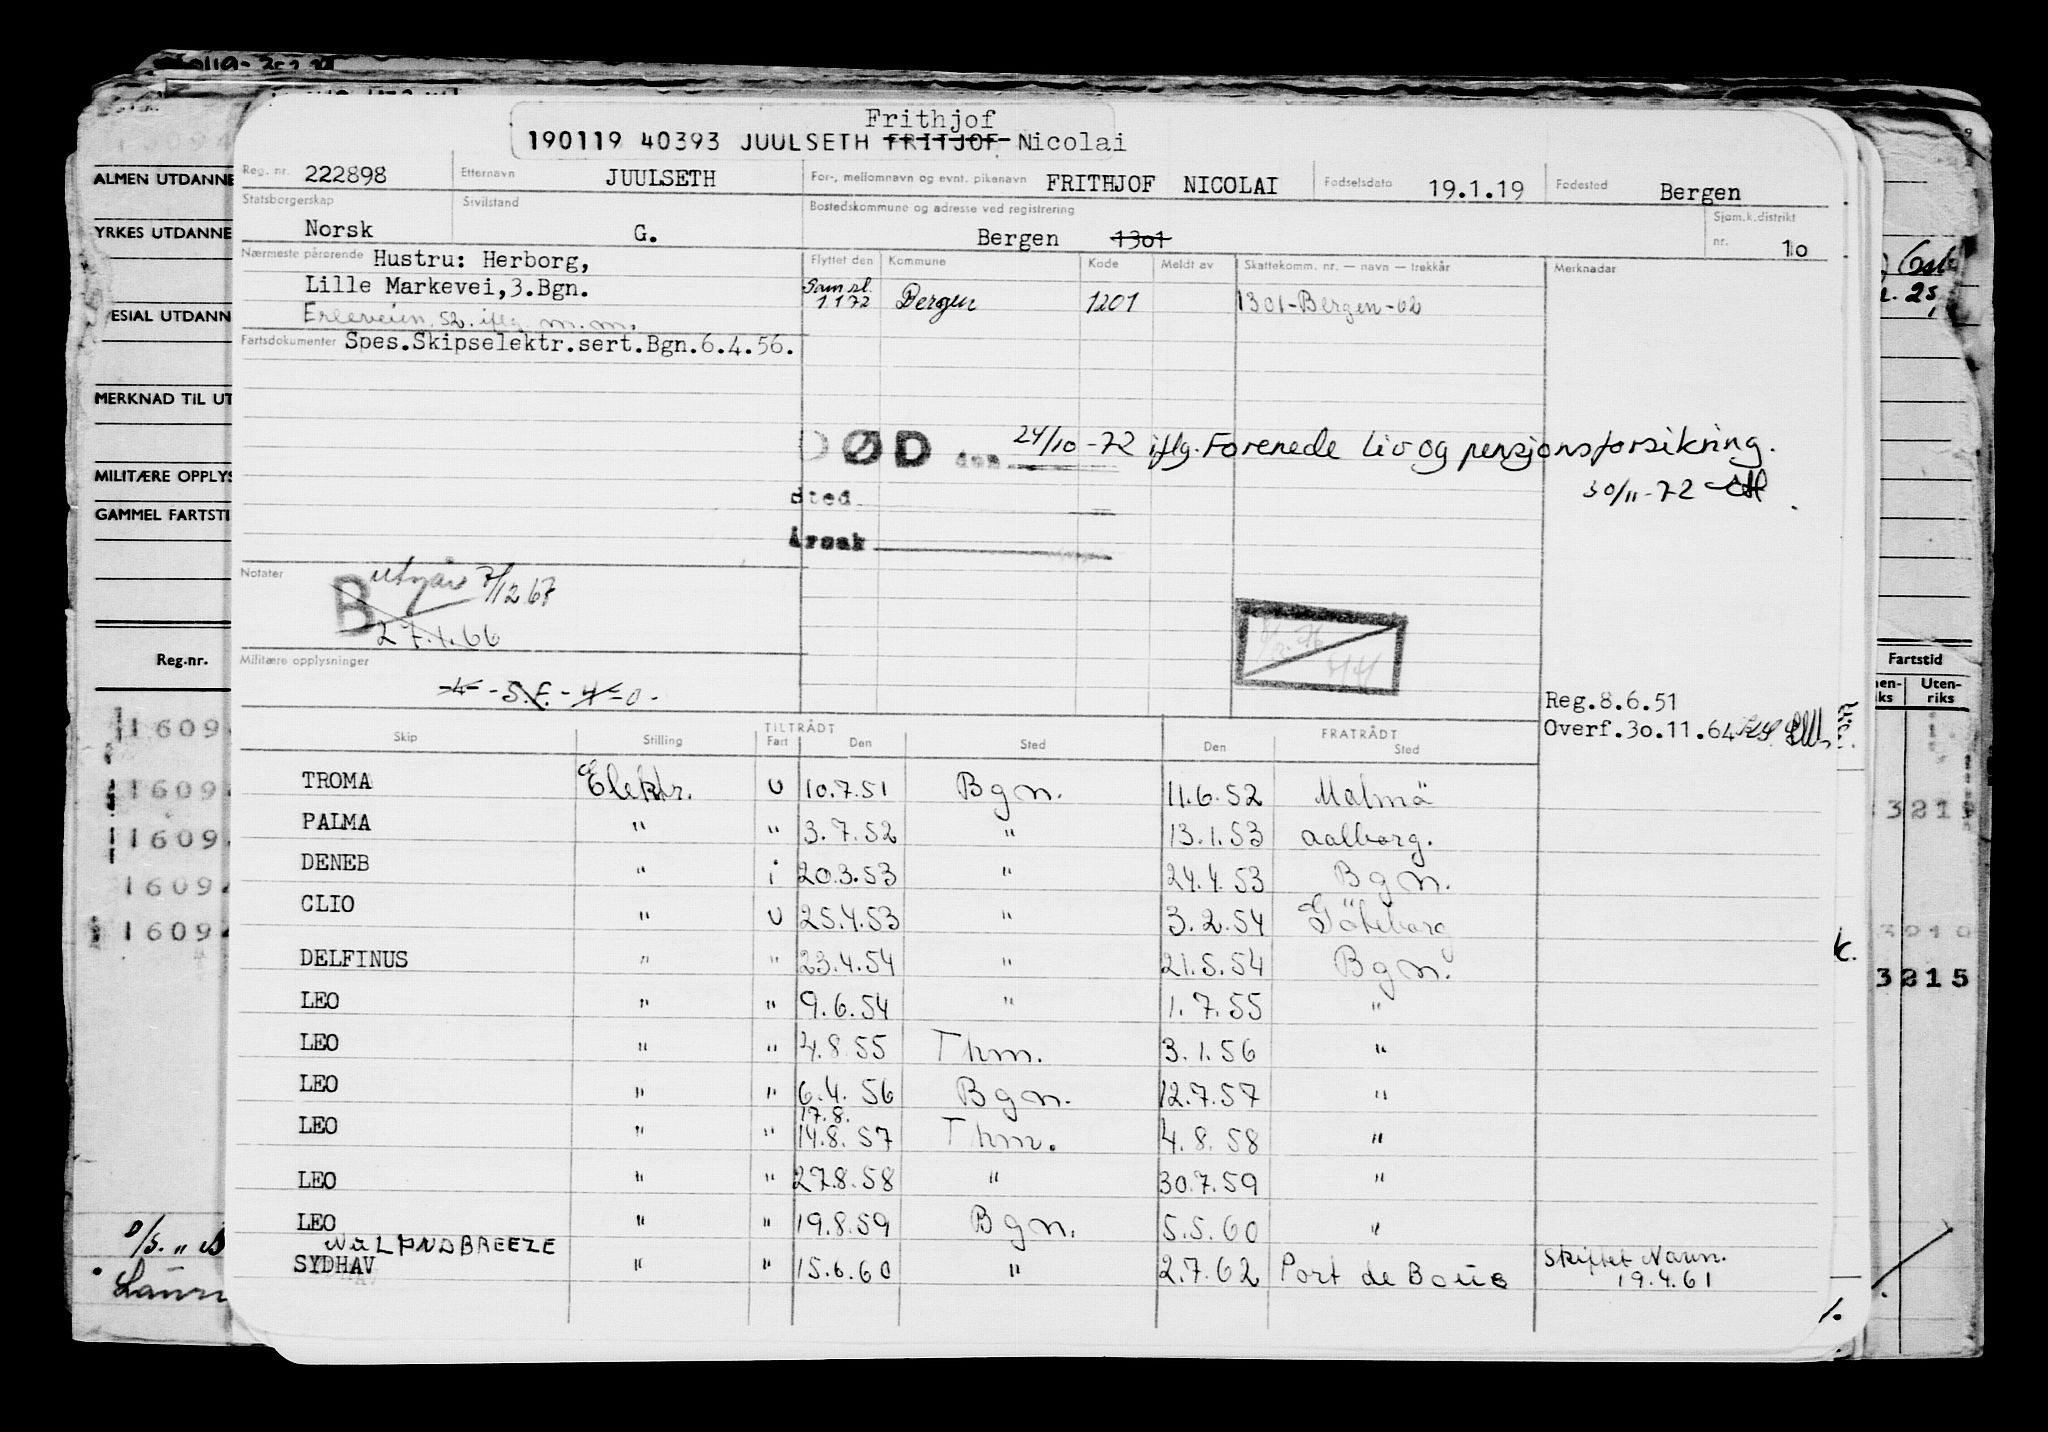 Frithjof
190119 40393 JUULSETH FRITJOF Nicolai
Reg. nr. 222898 Etternavn JUULSETH For-, mellomnavn og evnt. pikenavn FRITHJOF NICOLAI Fødselsdato 19.1.19 Fødested Bergen
Statsborgerskap Norsk Sivilstand G. Bostedskommune og adresse ved registrering Bergen 1301 Sjøm.k.distrikt nr. 10
Nærmeste pårørende Hustru: Herborg,
Lille Markevei,3.Bgn.
52. iflg m.m.
Flyttet den Kommune Kode Meldt av Skattekomm. nr. — navn — trekkår Merknader
Sam.sl.
1.1 72 Bergen 1201 1301-Bergen-02
Fartsdokumenter Spes.Skipselektr.sert.Bgn.6.4.56.
DØD den 24/10-72 iflg. Forenede Liv og pensjonsforsikring.
30/11-72
sted
Årsak
Notater
B utgår 7/12 67
27.1.66
Militære opplysninger
-4- -S.f.- 4-0-
Reg.8.6.51
Overf.30.11.64
Skip Stilling TILTRÅDT Fart Den Sted FRATRÅDT Den Sted
TROMA Elektr. u 10.7.51 Bgn. 11.6.52 Malmö
PALMA " " 3.7.52 " 13.1.53 Aalborg.
DENEB " i 20.3.53 " 24.4.53 Bgn.
CLIO " u 25.4.53 " 3.2.54 Göteborg
DELFINUS " " 23.4.54 " 21.5.54 Bgn.
LEO " " 9.6.54 " 1.7.55 "
LEO " " 4.8.55 Thm. 3.1.56 "
LEO " " 6.4.56 Bgn. 12.7.57 "
17.8.
LEO " " 14.8.57 Thm. 4.8.58 "
LEO " " 27.8.58 " 30.7.59 "
LEO " " 19.8.59 Bgn. 5.5.60 "
SYDHAV " " 15.6.60 " 2.7.62 Port de Boue Skiftet Navn.
19.4.61
ALMEN UTDANNE
YRKES UTDANNE
ESIAL UTDANN
MERKNAD TIL UT
MILITÆRE OPPLYS
GAMMEL FARTSTI
Reg.nr.
1609
1609
1609
1609
1609
Fartstid
Uten-
riks
3215